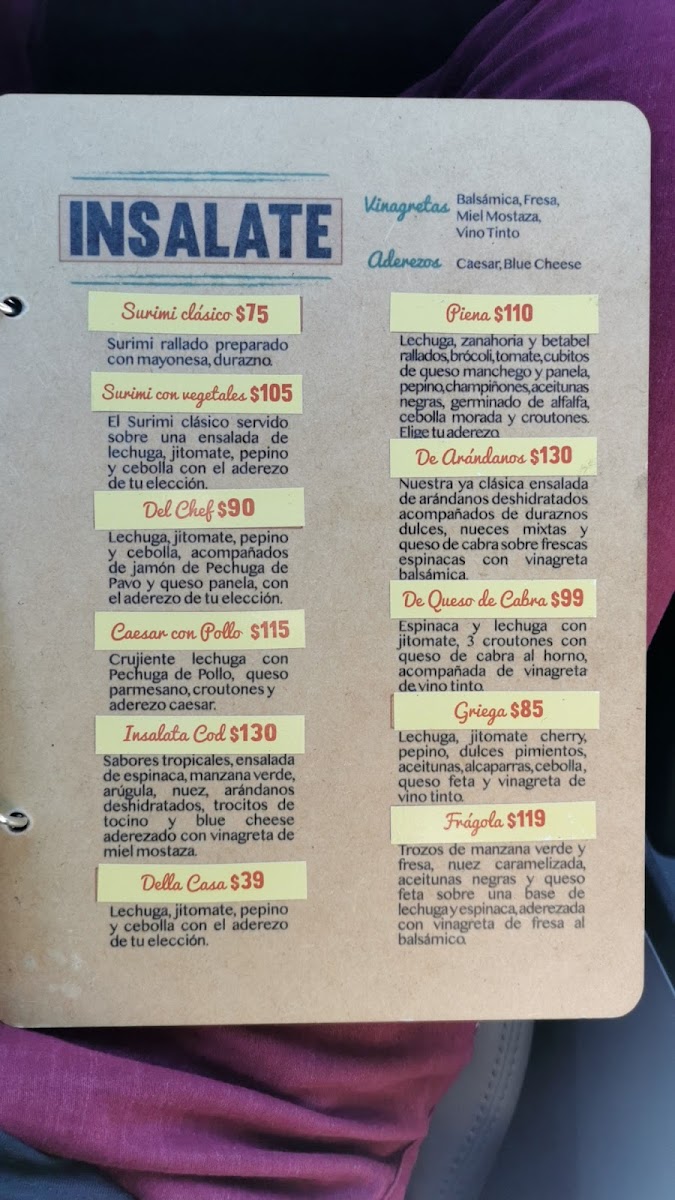 INSALATE
Vinagretas Balsámica, Fresa,
Miel Mostaza,
Vino Tinto
Aderezos Caesar, Blue Cheese
Surimi clásico $75
Surimi rallado preparado
con mayonesa, durazno.
Surimi con vegetales $105
El Surimi clásico servido
sobre una ensalada de
lechuga, jitomate, pepino
y cebolla con el aderezo
de tu elección.
Del Chef $90
Lechuga, jitomate, pepino
y cebolla, acompañados
de jamón de Pechuga de
Pavo y queso panela, con
el aderezo de tu elección.
Caesar con Pollo $115
Crujiente lechuga con
Pechuga de Pollo, queso
parmesano, croutones y
aderezo caesar.
Insalata Cod $130
Sabores tropicales, ensalada
de espinaca, manzana verde,
arúgula, nuez, arándanos
deshidratados, trocitos de
tocino y blue cheese
aderezado con vinagreta de
miel mostaza.
Della Casa $39
Lechuga, jitomate, pepino
y cebolla con el aderezo
de tu elección.
Piena $110
Lechuga, zanahoria y betabel
rallados, brócoli, tomate, cubitos
de queso manchego y panela,
pepino, champiñones, aceitunas
negras, germinado de alfalfa,
cebolla morada y croutones.
Elige tu aderezo
De Arándanos $130
Nuestra ya clásica ensalada
de arándanos deshidratados
acompañados de duraznos
dulces, nueces mixtas y
queso de cabra sobre frescas
espinacas con vinagreta
balsámica.
De Queso de Cabra $99
Espinaca y lechuga con
jitomate, 3 croutones con
queso de cabra al horno,
acompañada de vinagreta
de vino tinto.
Griega $85
Lechuga, jitomate cherry,
pepino, dulces pimientos,
aceitunas, alcaparras, cebolla,
queso feta y vinagreta de
vino tinto.
Frágola $119
Trozos de manzana verde y
fresa, nuez caramelizada,
aceitunas negras y queso
feta sobre una base de
lechuga y espinaca, aderezada
con vinagreta de fresa al
balsámico.